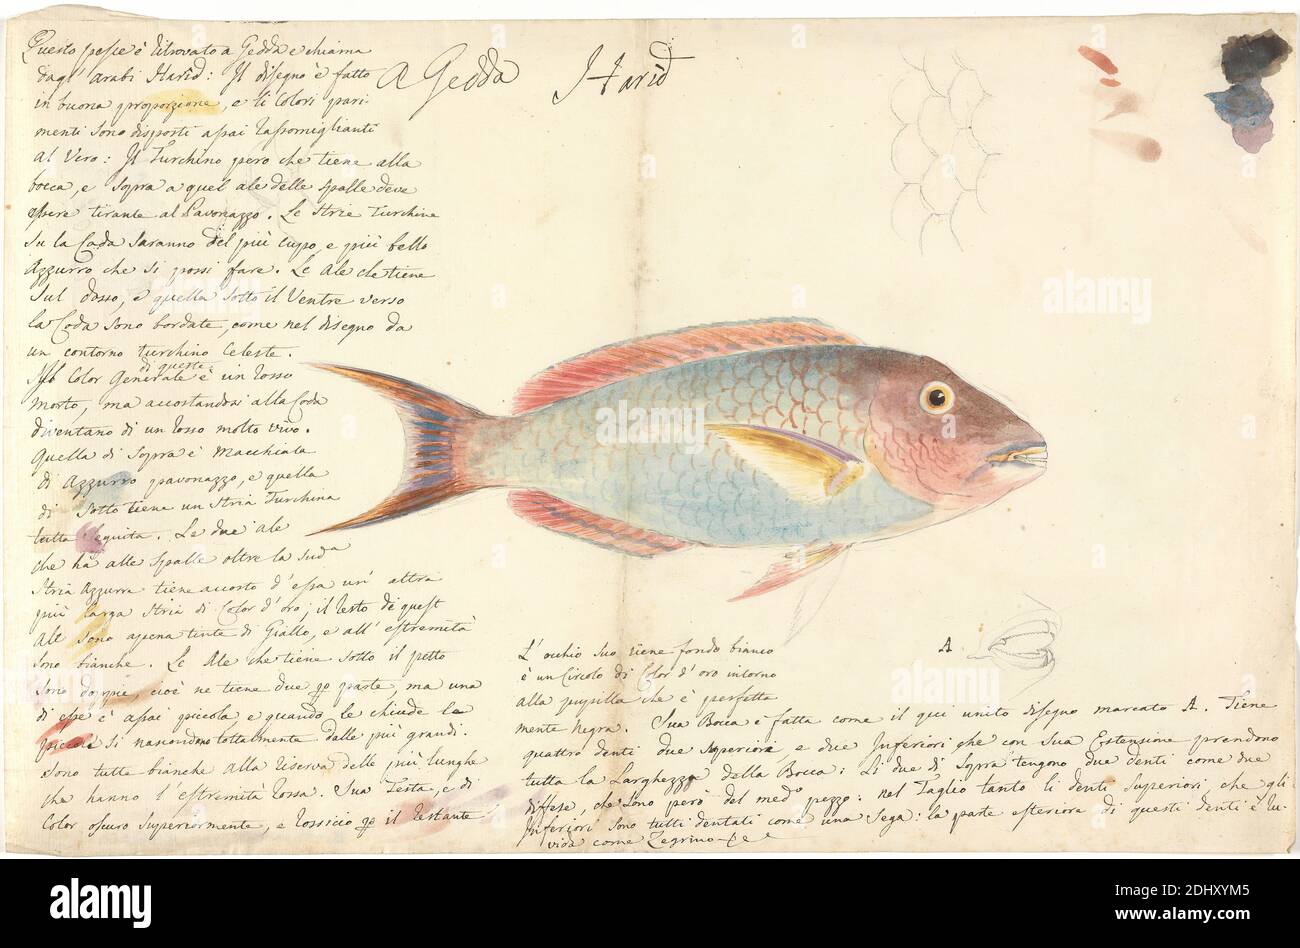 Questo pesse è ritrovato a Gedda e chiama
dagl' arabi Harid: Il disegno è fatto
in buona proporzione, e li Colori pari:
menti sono disposti assai rassomiglianti
al Vero: Il Turchino pero che tiene alla
bocca, e sopra a quel ale delle spalle deve
essere tirante al Pavonazzo. Le strie Turchine
su la Coda saranno del più cupo, e più bello
Azzurro che si possi fare. Le Ale che tiene
sul dosso, e quella sotto il Ventre verso
la Coda sono bordate, come nel disegno da
un contorno turchino Celeste.
di queste
Il Color Generale è un rosso
morto, ma accostandosi alla Coda
diventano di un rosso molto vivo.
Quella di Sopra è Macchiata
di Azzurro pavonazzo, e quella
di sotto tiene un Stria Turchina
tutta seguita. Le due ale
che ha alle spalle oltre la sud.a
Stria Azzurra tiene accosto d'essa un' altra
più larga stria di Color d'oro; il resto di quest
Ale sono apena tinte di Giallo, e all' estremità
sono bianche. Le Ale che tiene sotto il petto
sono doppie, cioè ne tiene due per parte, ma una
di esse è assai piccola e quando le chiude la
piccola si nascondono totalmente dalle più grandi.
sono tutte bianche alla riserva delle più lunghe
che hanno l'estremità rossa. Sua Testa, e di
Color oscuro superiormente, e rossicio per il restante
A Gedda Harid
L'occhio suo tiene fondo bianco
è un Circolo di Color d'oro intorno
alla pupilla che è perfetta
mente Negra. Sua Bocca è fatta come il qui unito disegno marcato A. Tiene
quattro denti due superiore e due Inferiori che con sua Estensione prendono
tutta la Larghezza della Bocca: Li due di sopra tengono due denti come due
diffese, che sono però del med.o pezzo: nel Taglio tanto li denti Superiori che gli
Inferiori sono tutti dentati come una Sega: la parte esteriora di questi denti è ru-
vida come Zegrino
A
alamy
Image ID: 2DHXYM5
www.alamy.com